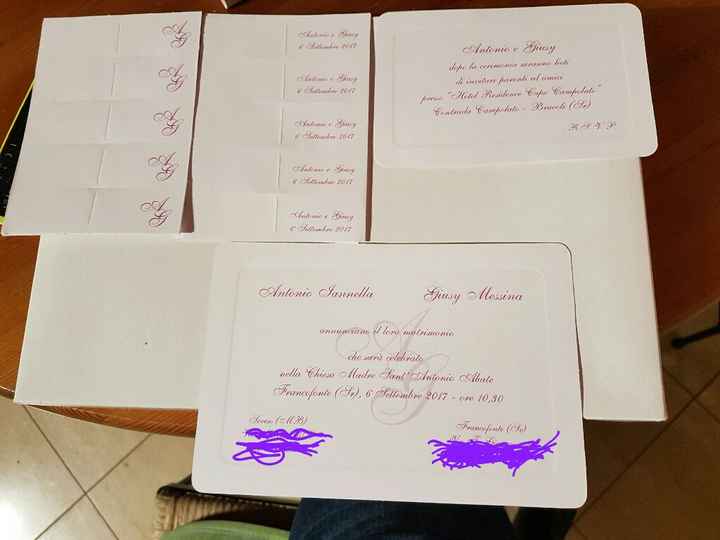 AG
AG
AG
AG
AG
Antonio e Giusy
6 Settembre 2017
Antonio e Giusy
6 Settembre 2017
Antonio e Giusy
6 Settembre 2017
Antonio e Giusy
6 Settembre 2017
Antonio e Giusy
6 Settembre 2017
Antonio e Giusy
dopo la cerimonia saranno lieti
di invitare parenti ed amici
presso "Hotel Residence Capo Campolato"
Contrada Campolato - Brucoli (Sr)
R.S.V.P.
Antonio Iannella Giusy Messina
annunciano il loro matrimonio
che sarà celebrato
nella Chiesa Madre Sant'Antonio Abate
Francofonte (Sr), 6 Settembre 2017 - ore 10,30
AG
(MB) Francofonte (Sr)